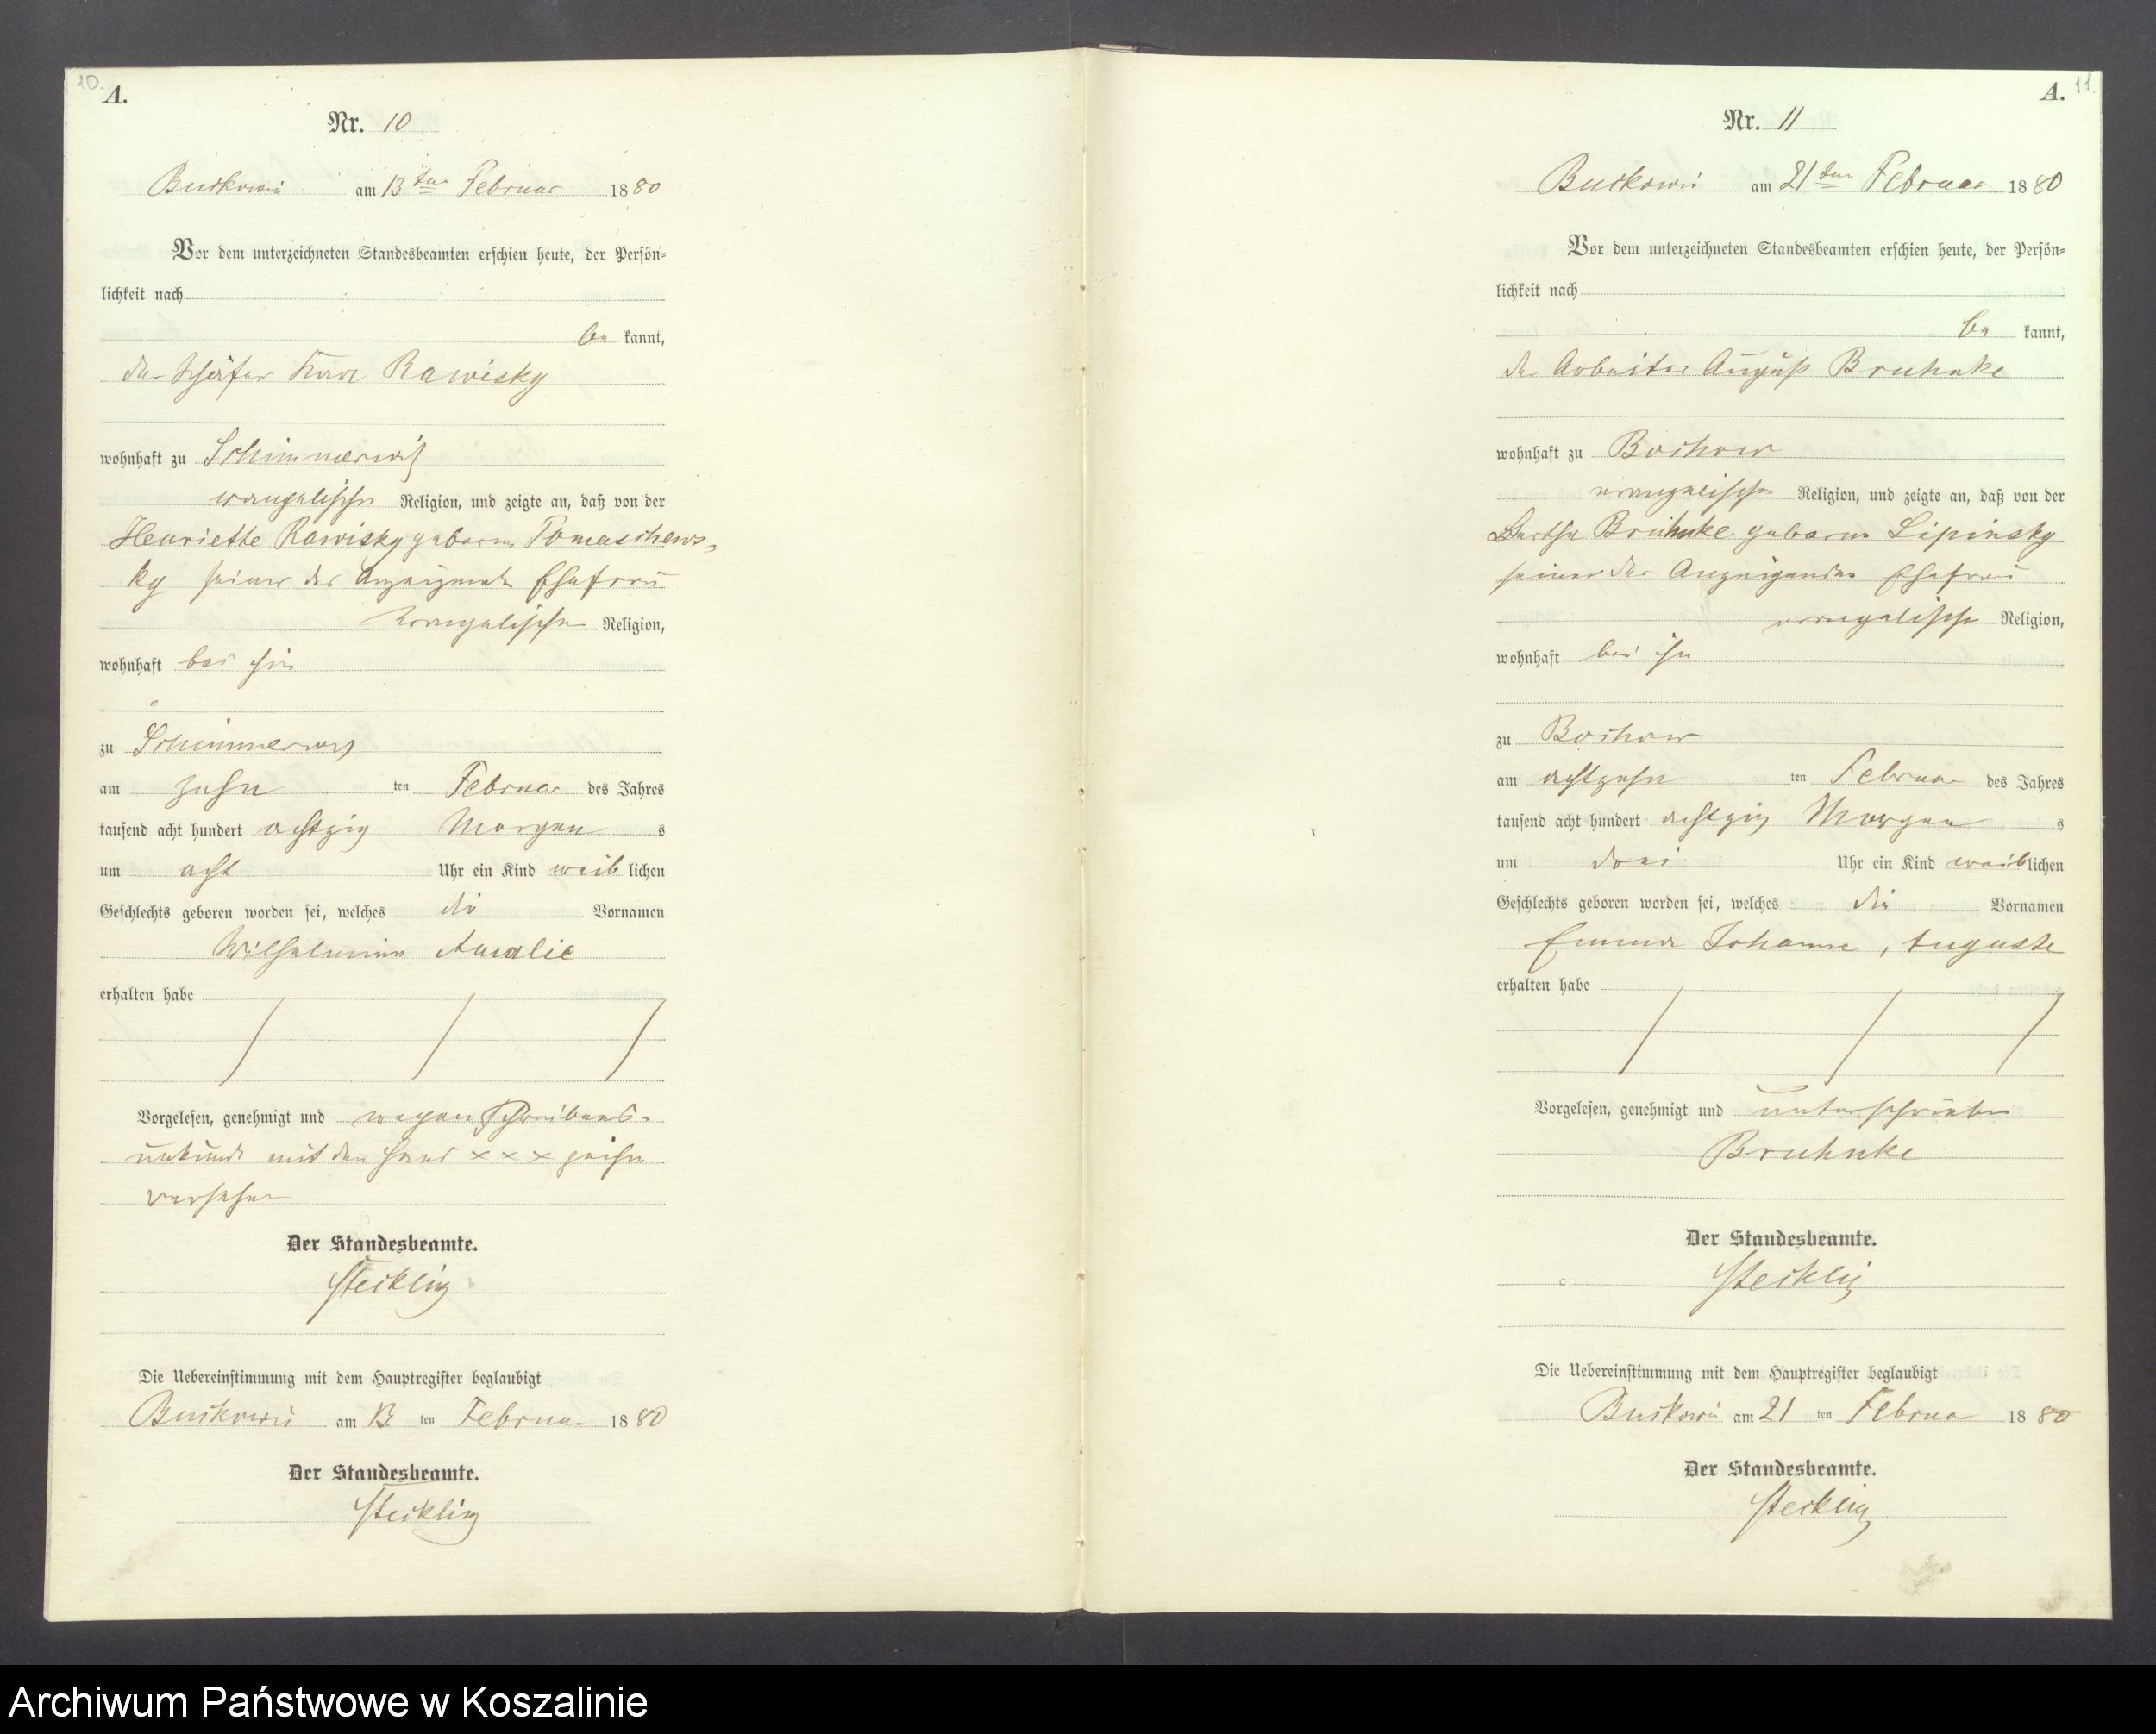 10.
A.
Nr. 10
Buckowin am 13ten Februar 1880
Vor dem unterzeichneten Standesbeamten erschien heute, der Persön=
lichkeit nach
be kannt,
der Schäfer Rawisky
wohnhaft zu Schimmerwitz
evangelischer Religion, und zeigte an, daß von der
Henriette Rawisky geborne Tomaschews-
ky seiner des Anzeigenden Ehefrau
evangelischer Religion,
wohnhaft bei ihm
zu Schimmerwitz
am zehn ten Februar des Jahres
tausend acht hundert achtzig Morgen s
um acht Uhr ein Kind weib lichen
Geschlechts geboren worden sei, welches die Vornamen
Wilhelmine Amalie
erhalten habe
Vorgelesen, genehmigt und wegen Schreibens-
unkunde mit den Hand x x x zeichen
versehen
Der Standesbeamte.
Steckling
Die Uebereinstimmung mit dem Hauptregister beglaubigt
Buckowin am 13 ten Februar 1880
Der Standesbeamte.
Steckling
11.
A.
Nr. 11
Buckowin am 21ten Februar 1880
Vor dem unterzeichneten Standesbeamten erschien heute, der Persön=
lichkeit nach
be kannt,
der Arbeiter August Bruhnke
wohnhaft zu Bochow
evangelischer Religion, und zeigte an, daß von der
Bertha Bruhnke geborne Lipinsky
seiner des Anzeigenden Ehefrau
evangelischer Religion,
wohnhaft bei ihm
zu Bochow
am achtzehn ten Februar des Jahres
tausend acht hundert achtzig Morgen s
um drei Uhr ein Kind weiblichen
Geschlechts geboren worden sei, welches die Vornamen
Emma Johanne, Auguste
erhalten habe
Vorgelesen, genehmigt und unterschrieben
Bruhnke
Der Standesbeamte.
Steckling
Die Uebereinstimmung mit dem Hauptregister beglaubigt
Buckowin am 21 ten Februar 1880
Der Standesbeamte.
Steckling
Archiwum Państwowe w Koszalinie